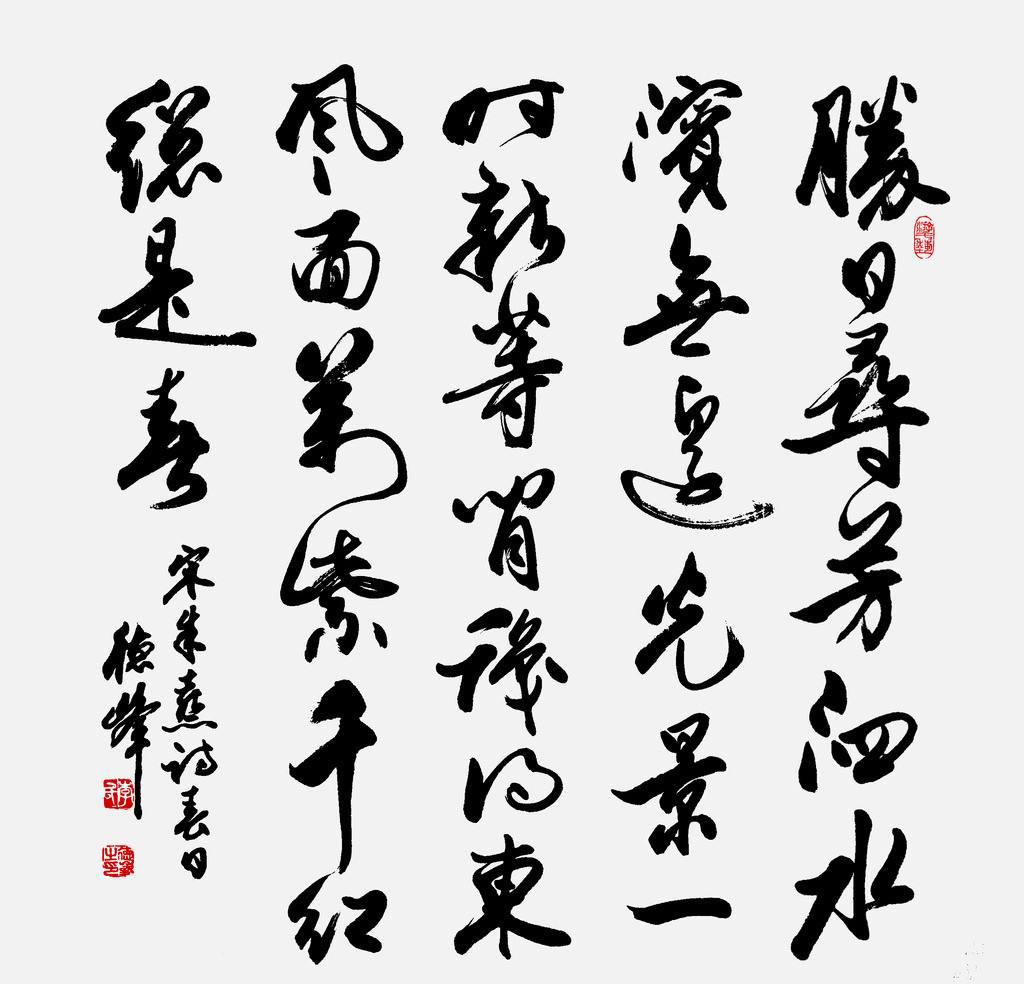 勝日尋芳泗水
濱無邊光景一
时新等閒識得東
風面萬紫千红
總是春
宋朱熹詩春日
德峰